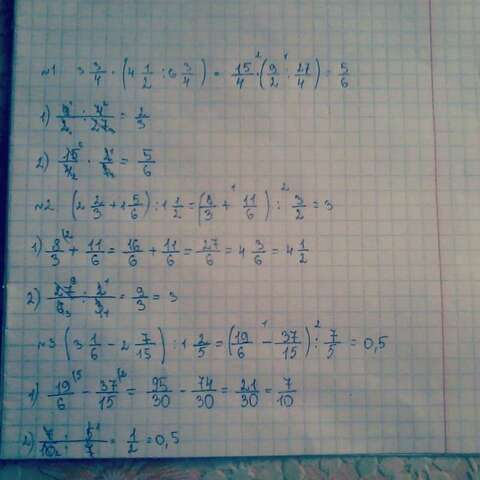 №1 3 3/4 · (4 1/2 : 6 3/4) = 15/4 · (9/2 : 27/4) = 5/6
1) 9/2 · 4/27 = 2/3
2) 15/4 · 2/3 = 5/6
№2 (2 2/3 + 1 5/6) : 1 1/2 = (8/3 + 11/6) : 3/2 = 3
1) 8/3 + 11/6 = 16/6 + 11/6 = 27/6 = 4 3/6 = 4 1/2
2) 27/6 · 2/3 = 9/3 = 3
№3 (3 1/6 - 2 7/15) : 1 2/5 = (19/6 - 37/15) : 7/5 = 0,5
1) 19/6 - 37/15 = 95/30 - 74/30 = 21/30 = 7/10
2) 7/10 · 5/7 = 1/2 = 0,5